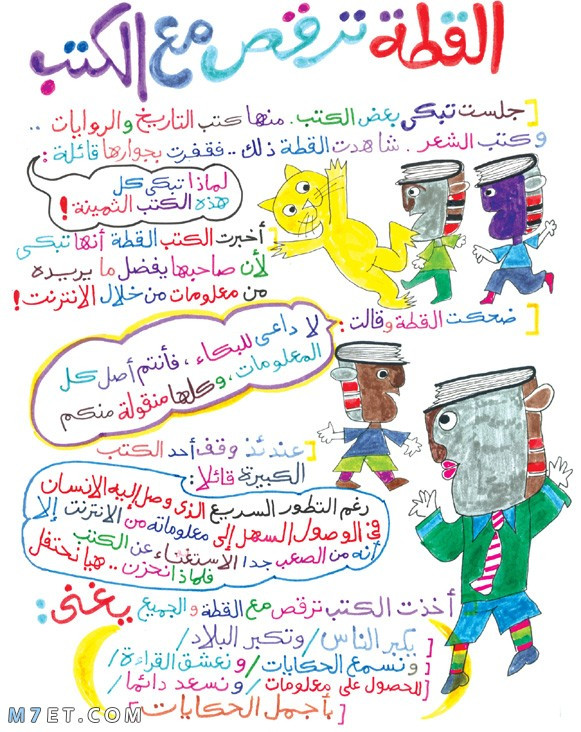 القطة ترقص مع الكتب
[جلست تبكى بعض الكتب. منها كتب التاريخ والروايات ..
وكتب الشعر. شاهدت القطة ذلك .. فقفزت بجوارها قائلة:
لماذا تبكى كل
هذه الكتب الثمينة!
[أخبرت الكتب القطة أنها تبكى
لأن صاحبها يفضل ما يريده
من معلومات من خلال الانترنت!
[ضحكت القطة وقالت:
لا داعى للبكاء، فأنتم أصل كل
المعلومات، وكلها منقولة منكم
[عندئذ وقف أحد الكتب
الكبيرة قائلا:
رغم التطور السريع الذى وصل إليه الانسان
فى الوصول السهل إلى معلوماته من الانترنت إلا
أنه من الصعب جدا الاستغناء عن الكتب
فلماذا نحزن .. هيا نحتفل
أخذت الكتب ترقص مع القطة والجميع يغنى:
[يكبر الناس/ وتكبر البلاد/
[ونسمع الحكايات/ ونعشق القراءة/
[للحصول على معلومات/ ونسعد دائما/
[بأجمل الحكايات]
M7ET.COM